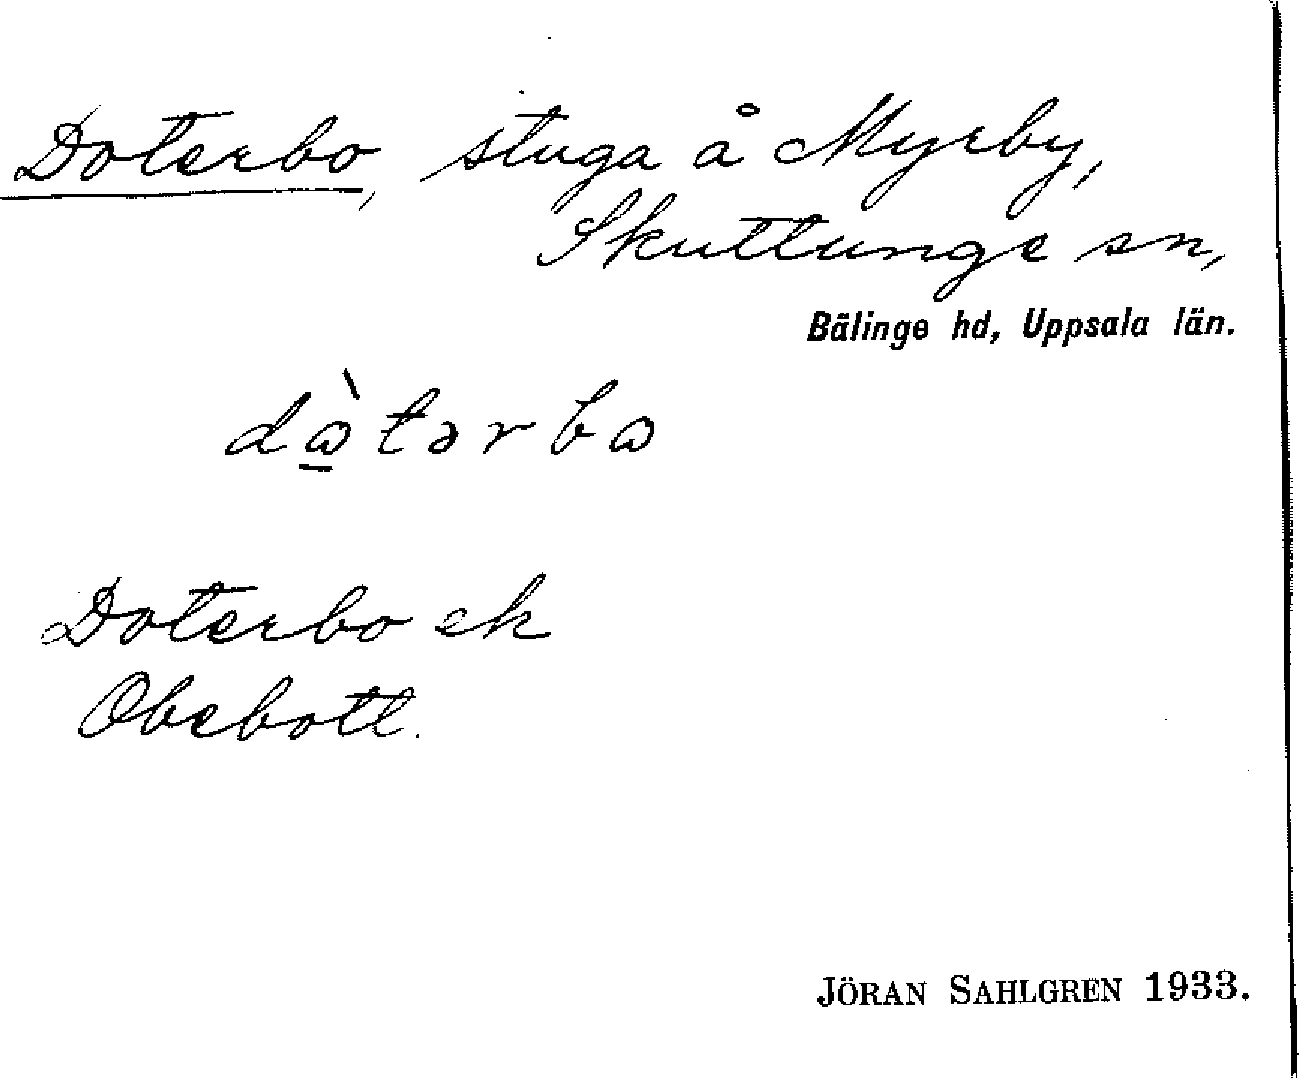 Doterbo, stuga å Myrby,
Skuttunge sn,
Bälinge hd, Uppsala län.
dὼ̱tərbω
Doterbo ek
Obebotl.
JÖRAN SAHLGREN 1933.